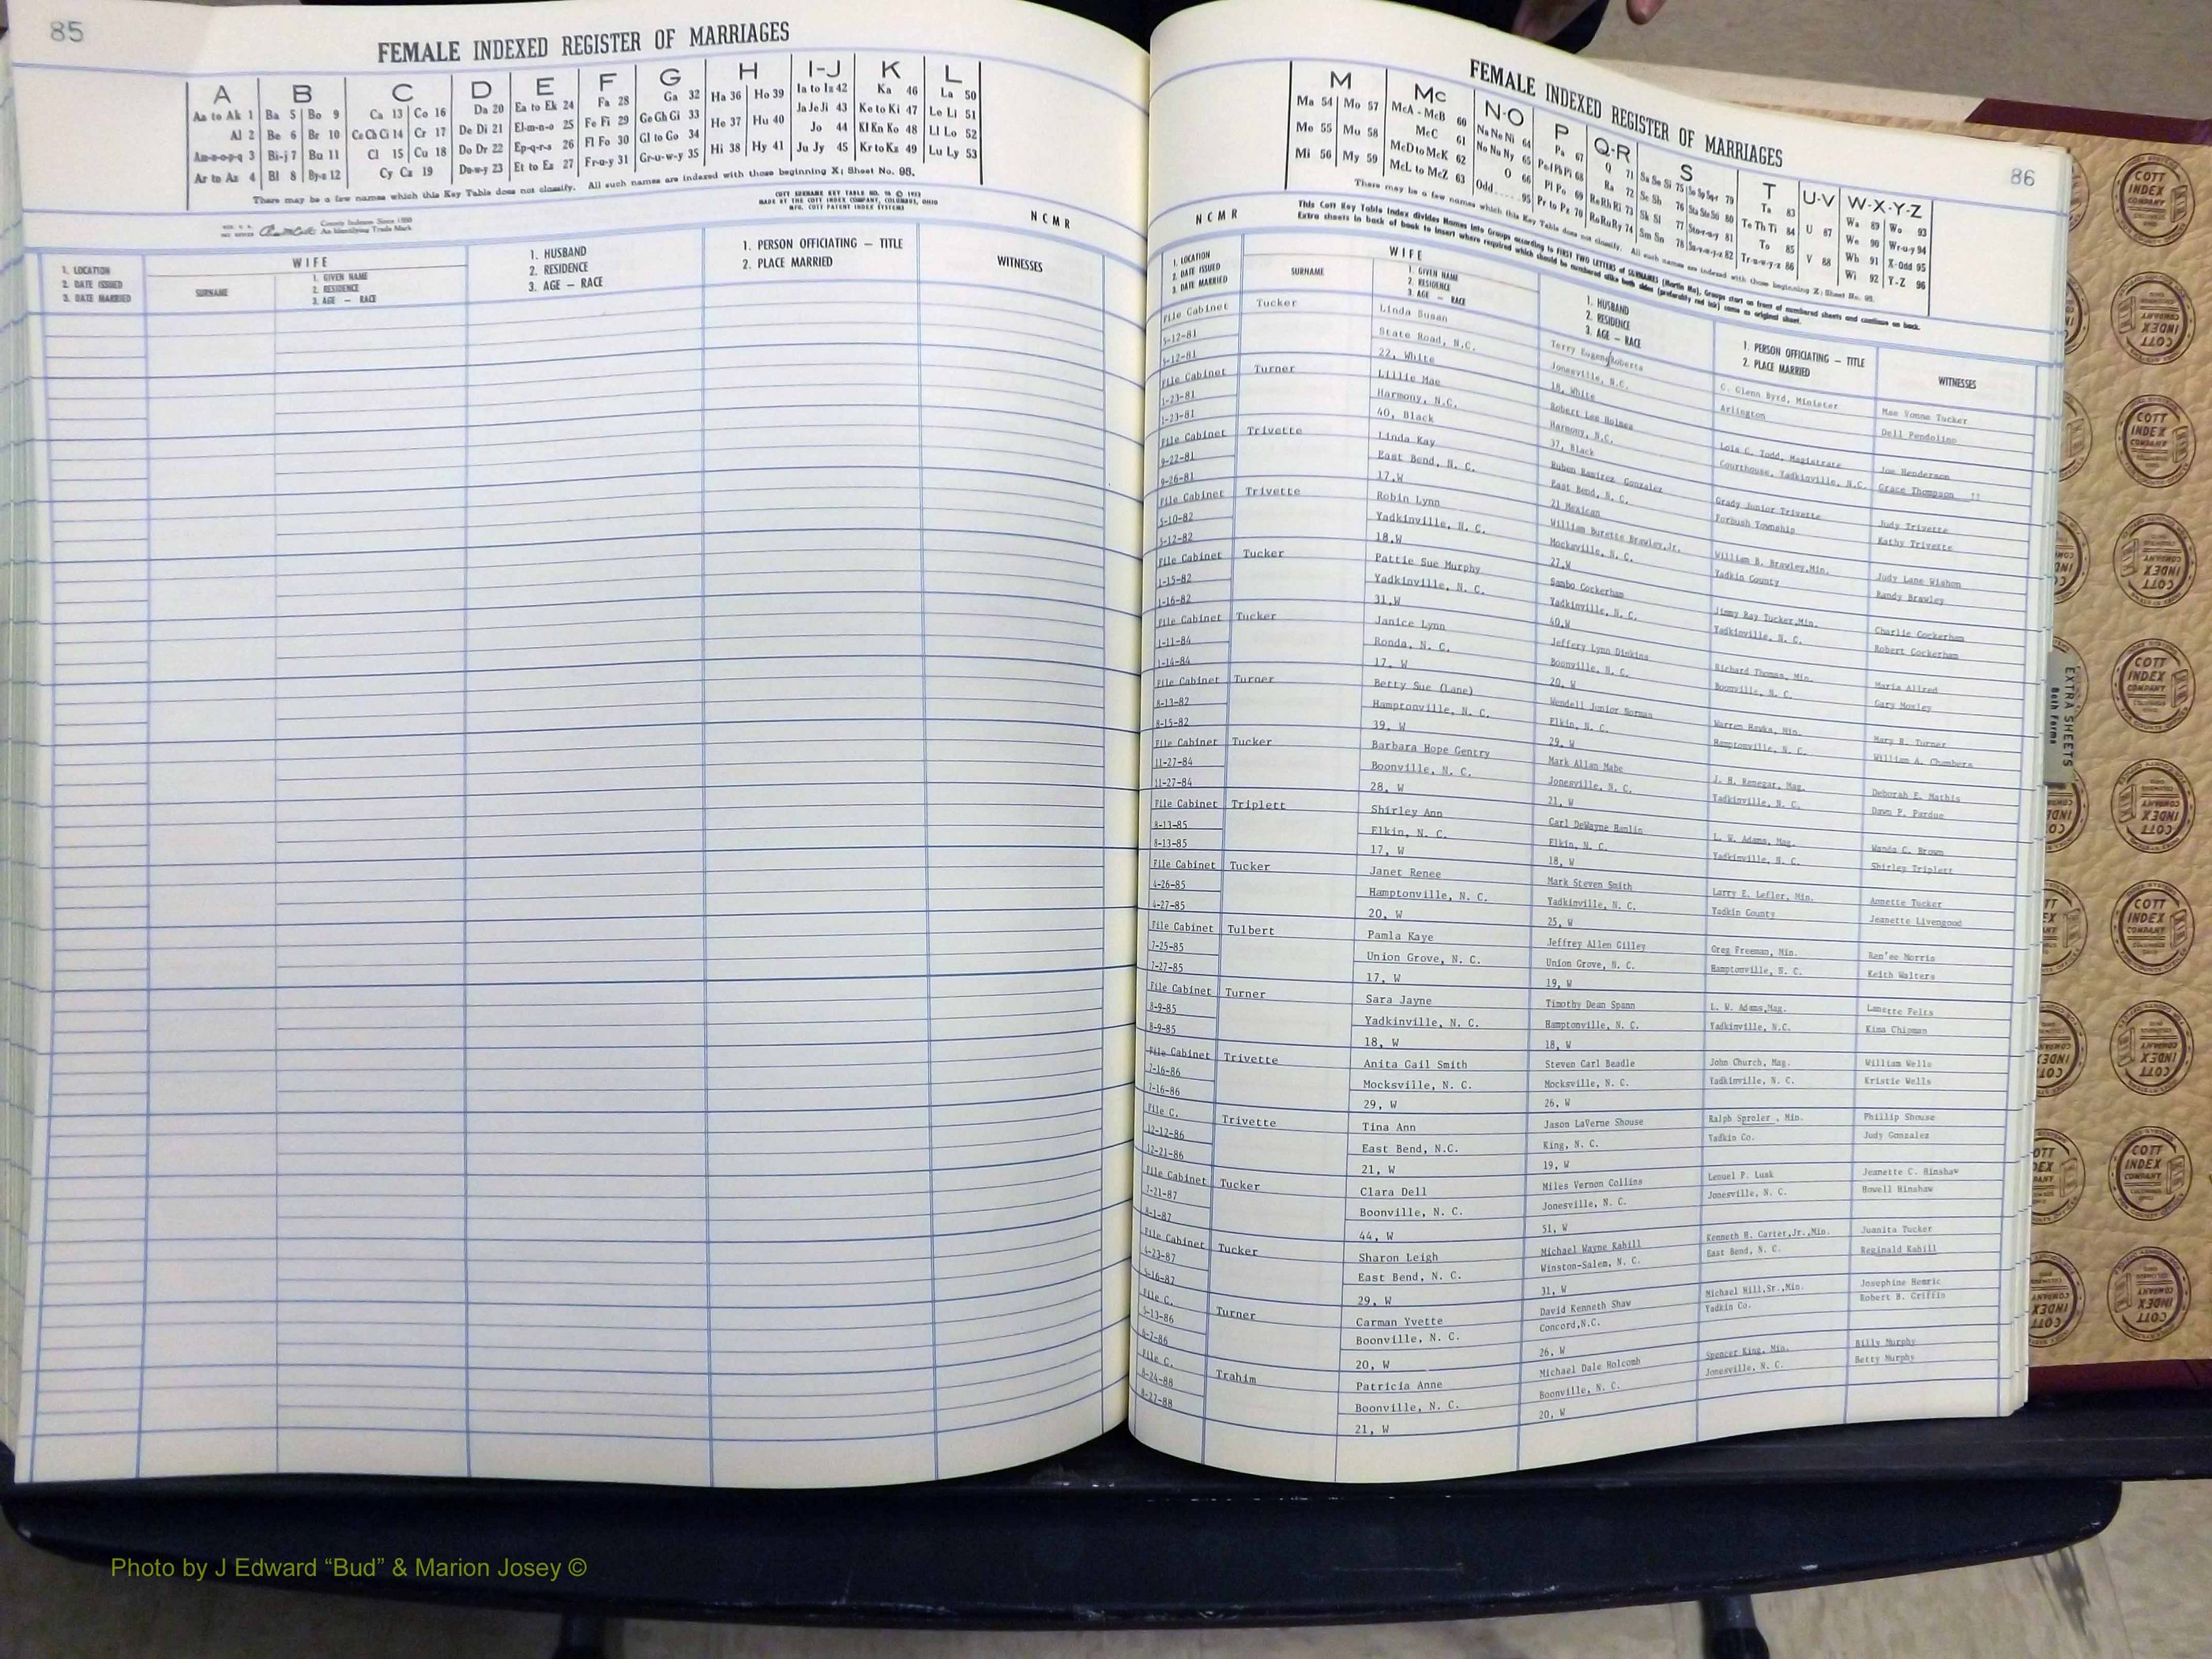 85
FEMALE INDEXED REGISTER OF MARRIAGES
A B C D E F G H I-J K L
Aa to Ak 1 Ba 5 Bo 9 Ca 13 Co 16 Da 20 Ea to Ek 24 Fa 28 Ga 32 Ha 36 Ho 39 Ia to Iz 42 Ka 46 La 50
Al 2 Be 6 Br 10 Ce Ch Ci 14 Cr 17 De Di 21 El-m-n-o 25 Fe Fi 29 Ge Gh Gi 33 He 37 Hu 40 Ja Je Ji 43 Ke to Ki 47 Le Li 51
Am-n-o-p-q 3 Bi-j 7 Bu 11 Cl 15 Cu 18 Do Dr 22 Ep-q-r-s 26 Fl Fo 30 Gl to Go 34 Hi 38 Hy 41 Jo 44 Kl Kn Ko 48 Ll Lo 52
Ar to Az 4 Bl 8 By-z 12 Cy Cz 19 Du-w-y 23 Et to Ez 27 Fr-u-y 31 Gr-u-w-y 35 Ju Jy 45 Kr to Kz 49 Lu Ly 53
There may be a few names which this Key Table does not classify. All such names are indexed with those beginning X; Sheet No. 95.
MADE BY THE COTT INDEX COMPANY, COLUMBUS, OHIO
An Identifying Trade Mark
N C M R
1. LOCATION
2. DATE ISSUED
3. DATE MARRIED
WIFE
SURNAME
1. GIVEN NAME
2. RESIDENCE
3. AGE — RACE
1. HUSBAND
2. RESIDENCE
3. AGE — RACE
1. PERSON OFFICIATING — TITLE
2. PLACE MARRIED
WITNESSES
86
FEMALE INDEXED REGISTER OF MARRIAGES
M Mc N-O P Q-R S T U-V W-X-Y-Z
Ma 54 Mo 57 McA - McB 60
Me 55 Mu 58 McC 61
Mi 56 My 59 McD to McK 62
McL to McZ 63
N C M R
1. LOCATION
2. DATE ISSUED
3. DATE MARRIED
WIFE
SURNAME
1. GIVEN NAME
2. RESIDENCE
3. AGE — RACE
1. HUSBAND
2. RESIDENCE
3. AGE — RACE
1. PERSON OFFICIATING — TITLE
2. PLACE MARRIED
WITNESSES
File Cabinet Tucker Linda Susan Terry Eugene Roberts C. Glenn Byrd, Minister Mae Vonne Tucker
5-12-81 State Road, N.C. Jonesville, N.C. Arlington Dell Pendolino
5-12-81 22, White 18, White
File Cabinet Turner Lillie Mae Robert Lee Holmes Lois C. Todd, Magistrate Joe Henderson
1-23-81 Harmony, N.C. Harmony, N.C. Courthouse, Yadkinville, N.C. Grace Thompson
1-23-81 40, Black 37, Black
File Cabinet Trivette Linda Kay Ruben Ramirez Gonzalez Grady Junior Trivette Judy Trivette
9-22-81 East Bend, N. C. East Bend, N. C. Forbush Township Kathy Trivette
9-26-81 17,W 21 Mexican
File Cabinet Trivette Robin Lynn William Burette Brawley,Jr. William B. Brawley,Min. Judy Lane Wishon
5-10-82 Yadkinville, N. C. Mocksville, N. C. Yadkin County Randy Brawley
5-12-82 18,W 27,W
File Cabinet Tucker Pattie Sue Murphy Sambo Cockerham Jimmy Ray Tucker,Min. Charlie Cockerham
1-15-82 Yadkinville, N. C. Yadkinville, N. C. Yadkinville, N. C. Robert Cockerham
1-16-82 31,W 40,W
File Cabinet Tucker Janice Lynn Jeffery Lynn Dinkins Richard Thomas, Min. Maria Allred
1-11-84 Ronda, N. C. Boonville, N. C. Boonville, N. C. Gary Moxley
1-14-84 17, W 20, W
File Cabinet Turner Betty Sue (Lane) Wendell Junior Norman Warren Hawks, Min. Mary B. Turner
8-13-82 Hamptonville, N. C. Elkin, N. C. Hamptonville, N. C. William A. Chambers
8-15-82 39, W 29, W
File Cabinet Tucker Barbara Hope Gentry Mark Allan Mabe J. H. Renegar, Mag. Deborah E. Mathis
11-27-84 Boonville, N. C. Jonesville, N. C. Yadkinville, N. C. Dawn P. Pardue
11-27-84 28, W 21, W
File Cabinet Triplett Shirley Ann Carl DeWayne Hamlin L. W. Adams, Mag. Wanda C. Brown
8-13-85 Elkin, N. C. Elkin, N. C. Yadkinville, N. C. Shirley Triplett
8-13-85 17, W 18, W
File Cabinet Tucker Janet Renee Mark Steven Smith Larry E. Lefler, Min. Annette Tucker
4-26-85 Hamptonville, N. C. Yadkinville, N. C. Yadkin County Jeanette Livengood
4-27-85 20, W 25, W
File Cabinet Tulbert Pamla Kaye Jeffrey Allen Gilley Greg Freeman, Min. Ren'ee Norris
7-25-85 Union Grove, N. C. Union Grove, N. C. Hamptonville, N. C. Keith Walters
7-27-85 17, W 19, W
File Cabinet Turner Sara Jayne Timothy Dean Spann L. W. Adams,Mag. Lanette Felts
8-9-85 Yadkinville, N. C. Hamptonville, N. C. Yadkinville, N.C. Kima Chipman
8-9-85 18, W 18, W
File Cabinet Trivette Anita Gail Smith Steven Carl Beadle John Church, Mag. William Wells
7-16-86 Mocksville, N. C. Mocksville, N. C. Yadkinville, N. C. Kristie Wells
7-16-86 29, W 26, W
File C. Trivette Tina Ann Jason LaVerne Shouse Ralph Sproler , Min. Phillip Shouse
12-12-86 East Bend, N.C. King, N. C. Yadkin Co. Judy Gonzalez
12-21-86 21, W 19, W
File Cabinet Tucker Clara Dell Miles Vernon Collins Lenuel P. Lusk Jeanette C. Hinshaw
7-21-87 Boonville, N. C. Jonesville, N. C. Jonesville, N. C. Howell Hinshaw
8-1-87 44, W 51, W
File Cabinet Tucker Sharon Leigh Michael Wayne Kahill Kenneth H. Carter,Jr.,Min. Juanita Tucker
4-23-87 East Bend, N. C. Winston-Salem, N. C. East Bend, N. C. Reginald Kahill
5-16-87 29, W 31, W
File C. Turner Carman Yvette David Kenneth Shaw Michael Hill,Sr.,Min. Josephine Hemric
5-13-86 Boonville, N. C. Concord,N.C. Yadkin Co. Robert B. Griffin
6-7-86 20, W 26, W
File C. Trahim Patricia Anne Michael Dale Holcomb Spencer King, Min. Billy Murphy
8-24-88 Boonville, N. C. Boonville, N. C. Jonesville, N. C. Betty Murphy
8-27-88 21, W 20, W
EXTRA SHEETS
Both Forms
COTT INDEX COMPANY
Photo by J Edward “Bud” & Marion Josey ©